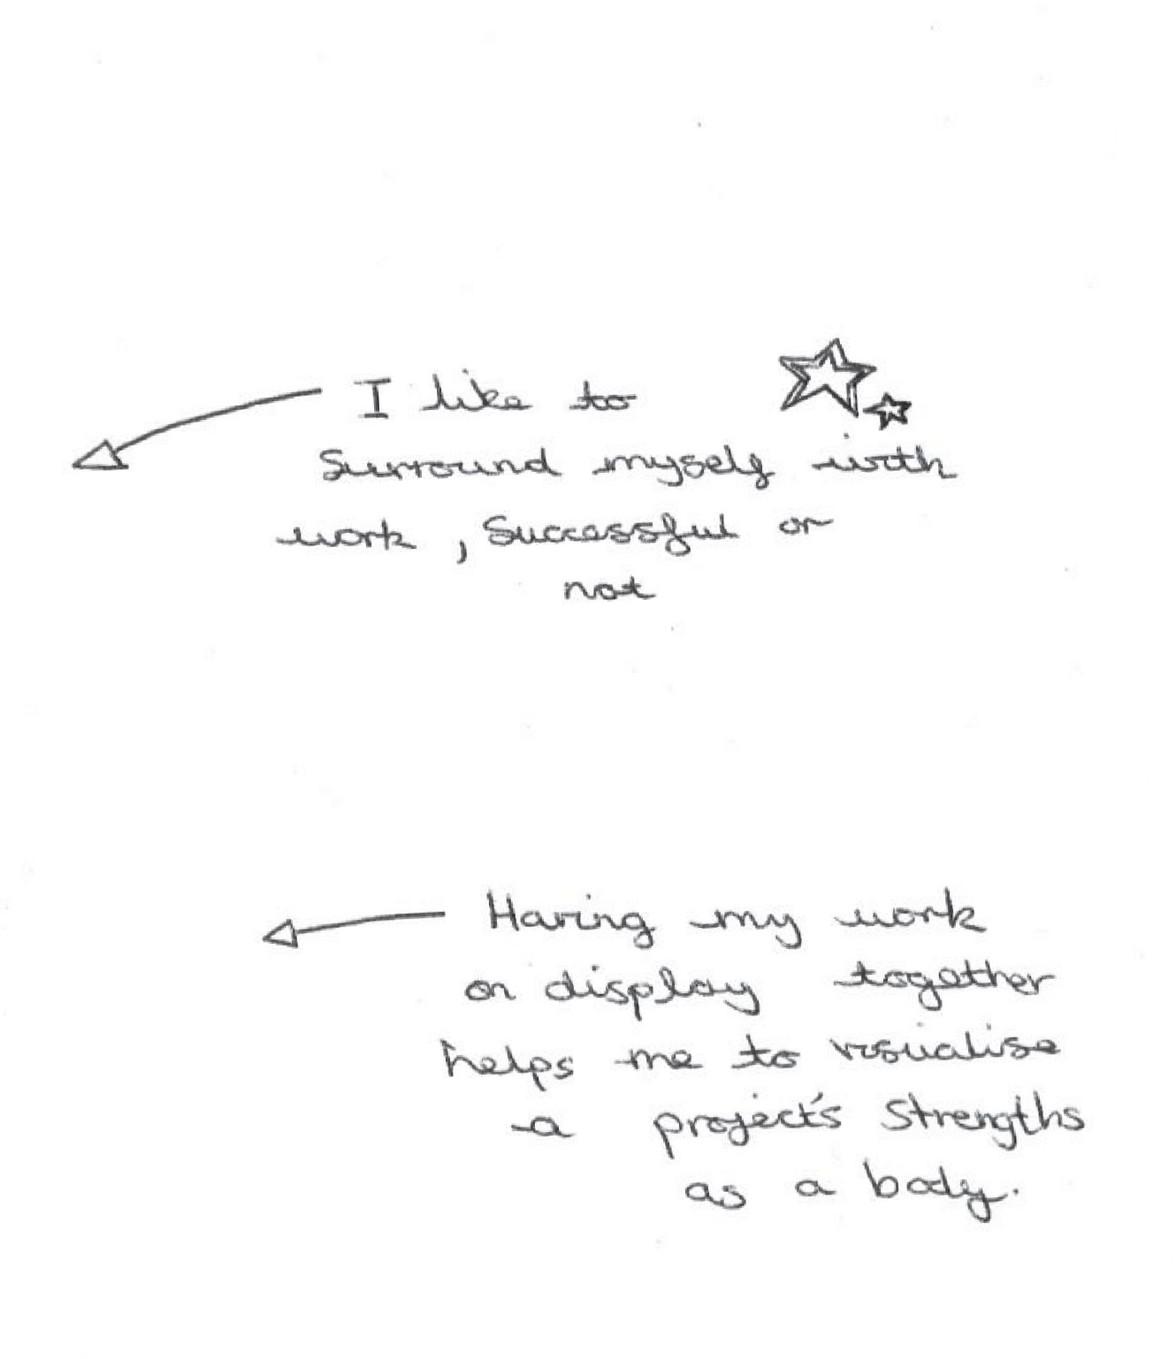 I like to
Surround myself with
work, Successful or
not
Having my work
on display together
helps me to visualise
a project's Strengths
as a body.